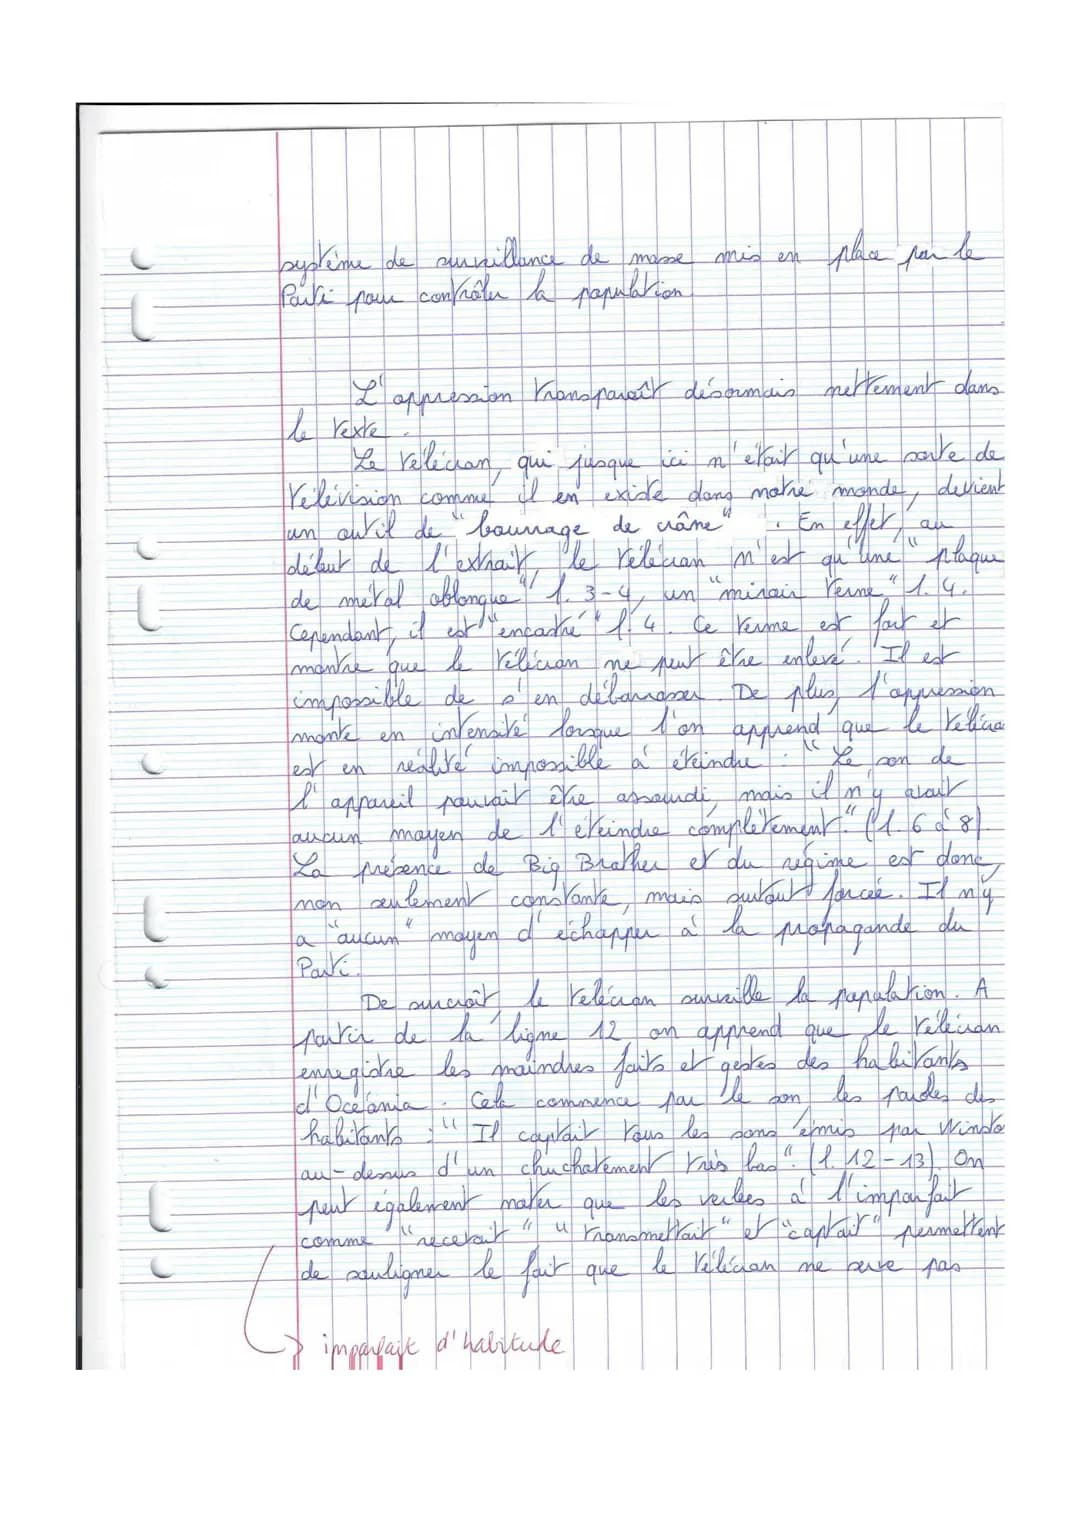 système de surveillance de masse mis en place par le
Parti pour contrôler la population.
L'oppression transparaît désormais nettement dans
le texte.
Le télécran, qui jusque ici n'était qu'une sorte de
télévision comme il en existe dans notre monde, devient
un outil de "bourrage de crâne". En effet, au
début de l'extrait, le télécran n'est qu'une "plaque
de métal oblongue" l. 3-4, un "miroir terne" l. 4.
Cependant, il est "encastré" l. 4. Ce terme est fort et
montre que le télécran ne peut être enlevé. Il est
impossible de s'en débarrasser. De plus, l'oppression
monte en intensité lorsque l'on apprend que le télécra
est en réalité impossible à éteindre : "Le son de
l'appareil pouvait être assourdi, mais il n'y avait
aucun moyen de l'éteindre complètement." (l. 6 à 8).
La présence de Big Brother et du régime est donc,
non seulement constante, mais surtout forcée. Il n'y
a "aucun" moyen d'échapper à la propagande du
Parti.
De surcroît, le télécran surveille la population. A
partir de la ligne 12 on apprend que le télécran
enregistre les moindres faits et gestes des habitants
d'Océania. Cela commence par le son les paroles des
habitants : "Il captait tous les sons émis par Winsto
au-dessus d'un chuchotement très bas". (l. 12-13). On
peut également noter que les verbes à l'imparfait
comme "recevait" "transmettait" et "captait" permettent
de souligner le fait que le télécran ne serve pas
imparfait d'habitude